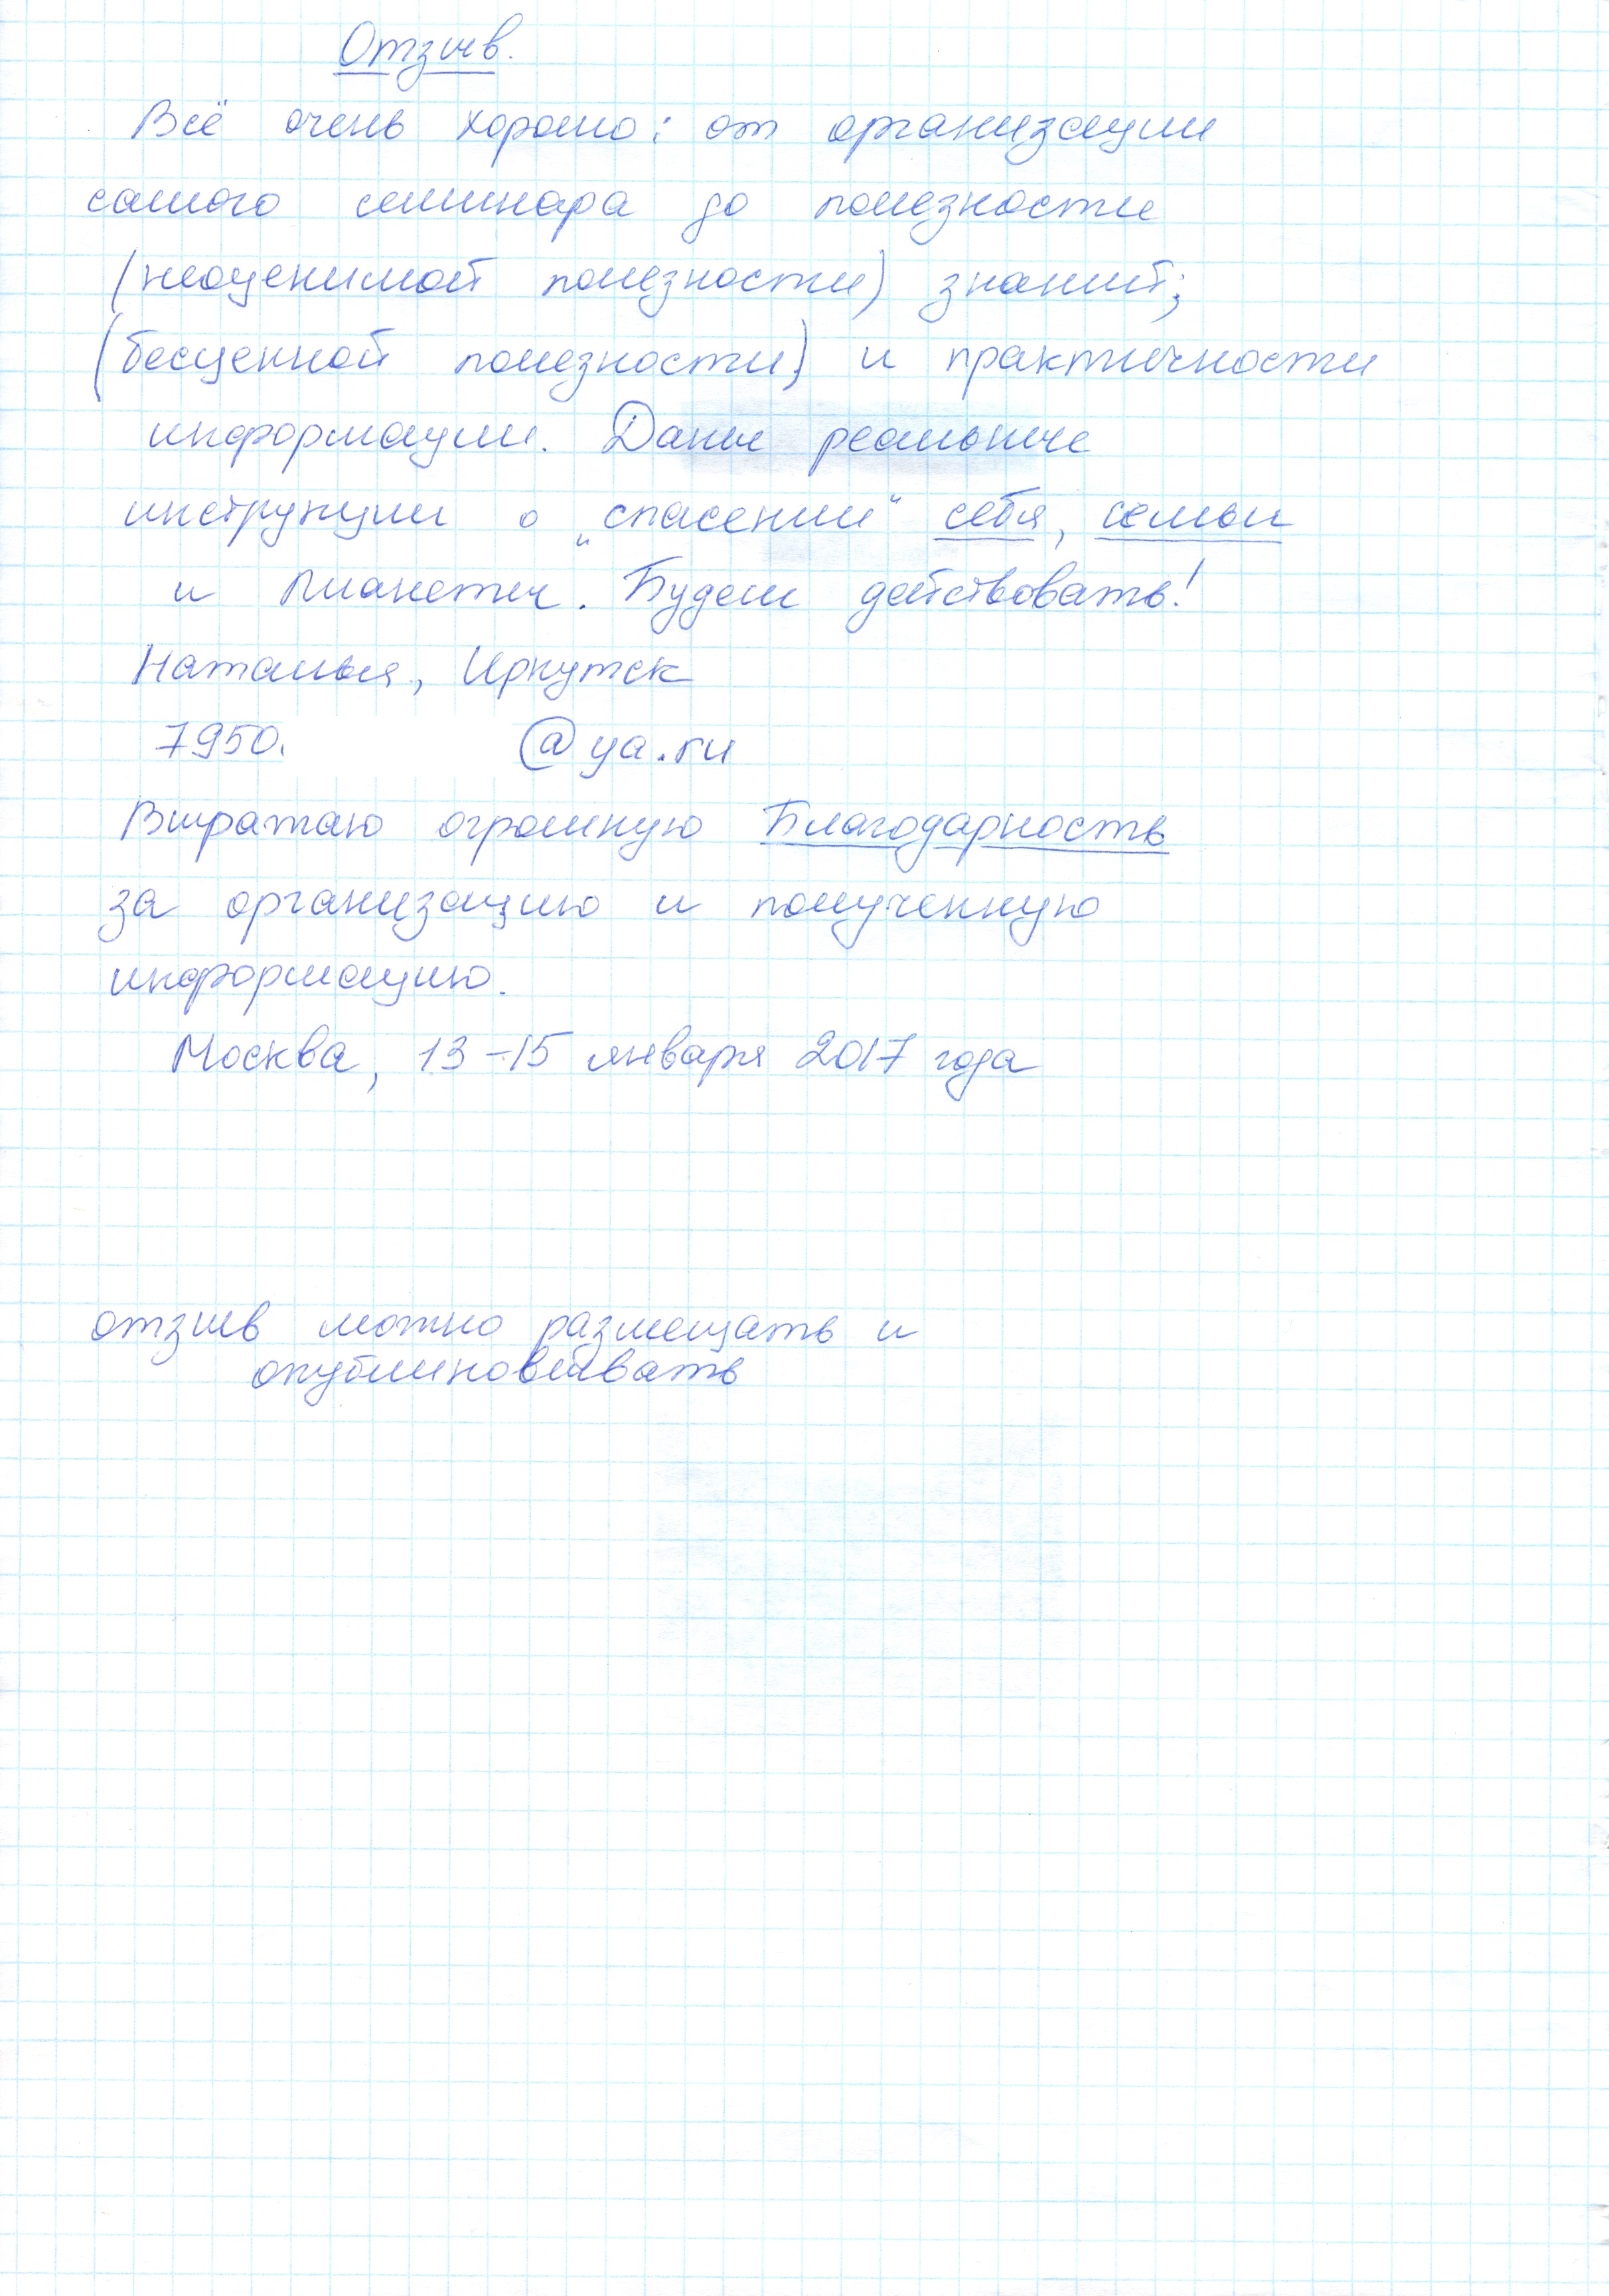 Отзыв.
Всё очень хорошо: от организации
самого семинара до полезности
(неоценимой полезности) знаний;
(бесценной полезности) и практичности
информации. Даны реальные
инструкции о „спасении“ себя, семьи
и "планеты. Будем действовать!
Наталья, Иркутск
7950. @ya.ru
Выражаю огромную Благодарность
за организацию и полученную
информацию.
Москва, 13-15 января 2017 года
отзыв можно размещать и
опубликовывать